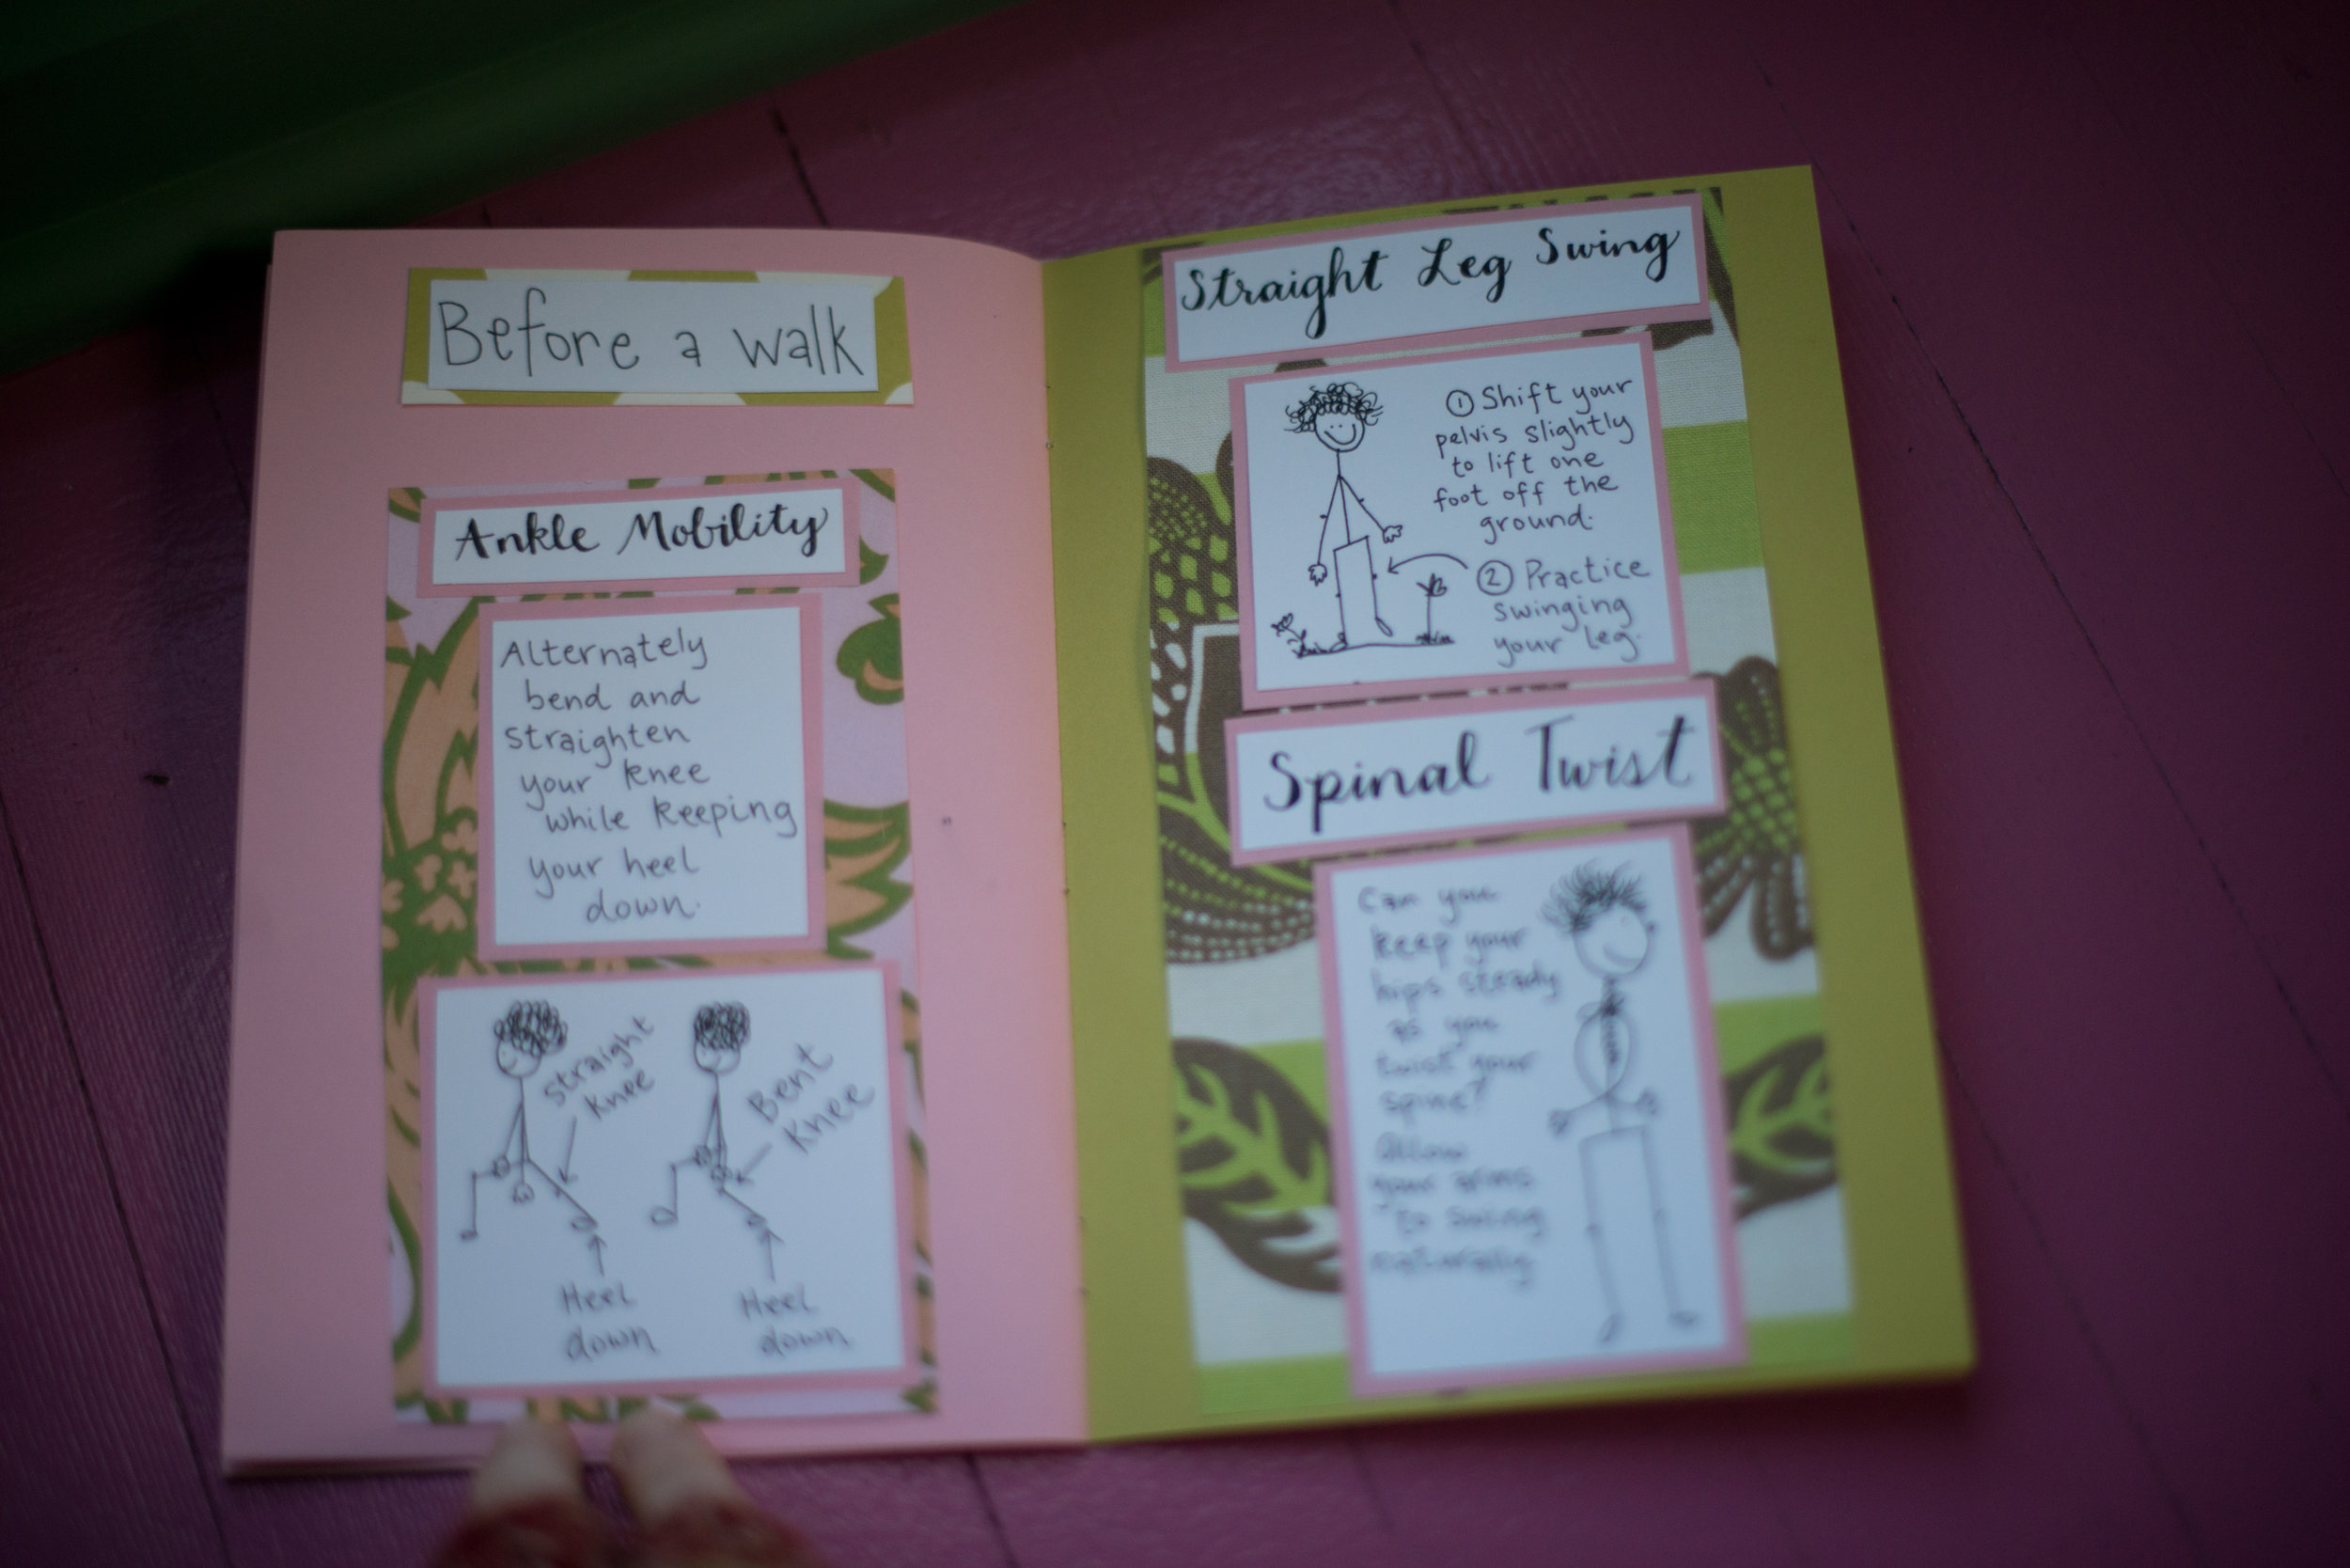 Before a walk
Ankle Mobility
Alternately
bend and
straighten
your knee
while keeping
your heel
down.
Straight
knee
Bent
knee
Heel
down
Heel
down
Straight Leg Swing
① Shift your
pelvis slightly
to lift one
foot off the
ground.
② Practice
swinging
your leg.
Spinal Twist
Can you
keep your
hips steady
as you
twist your
spine?
Allow
your arms
to swing
naturally